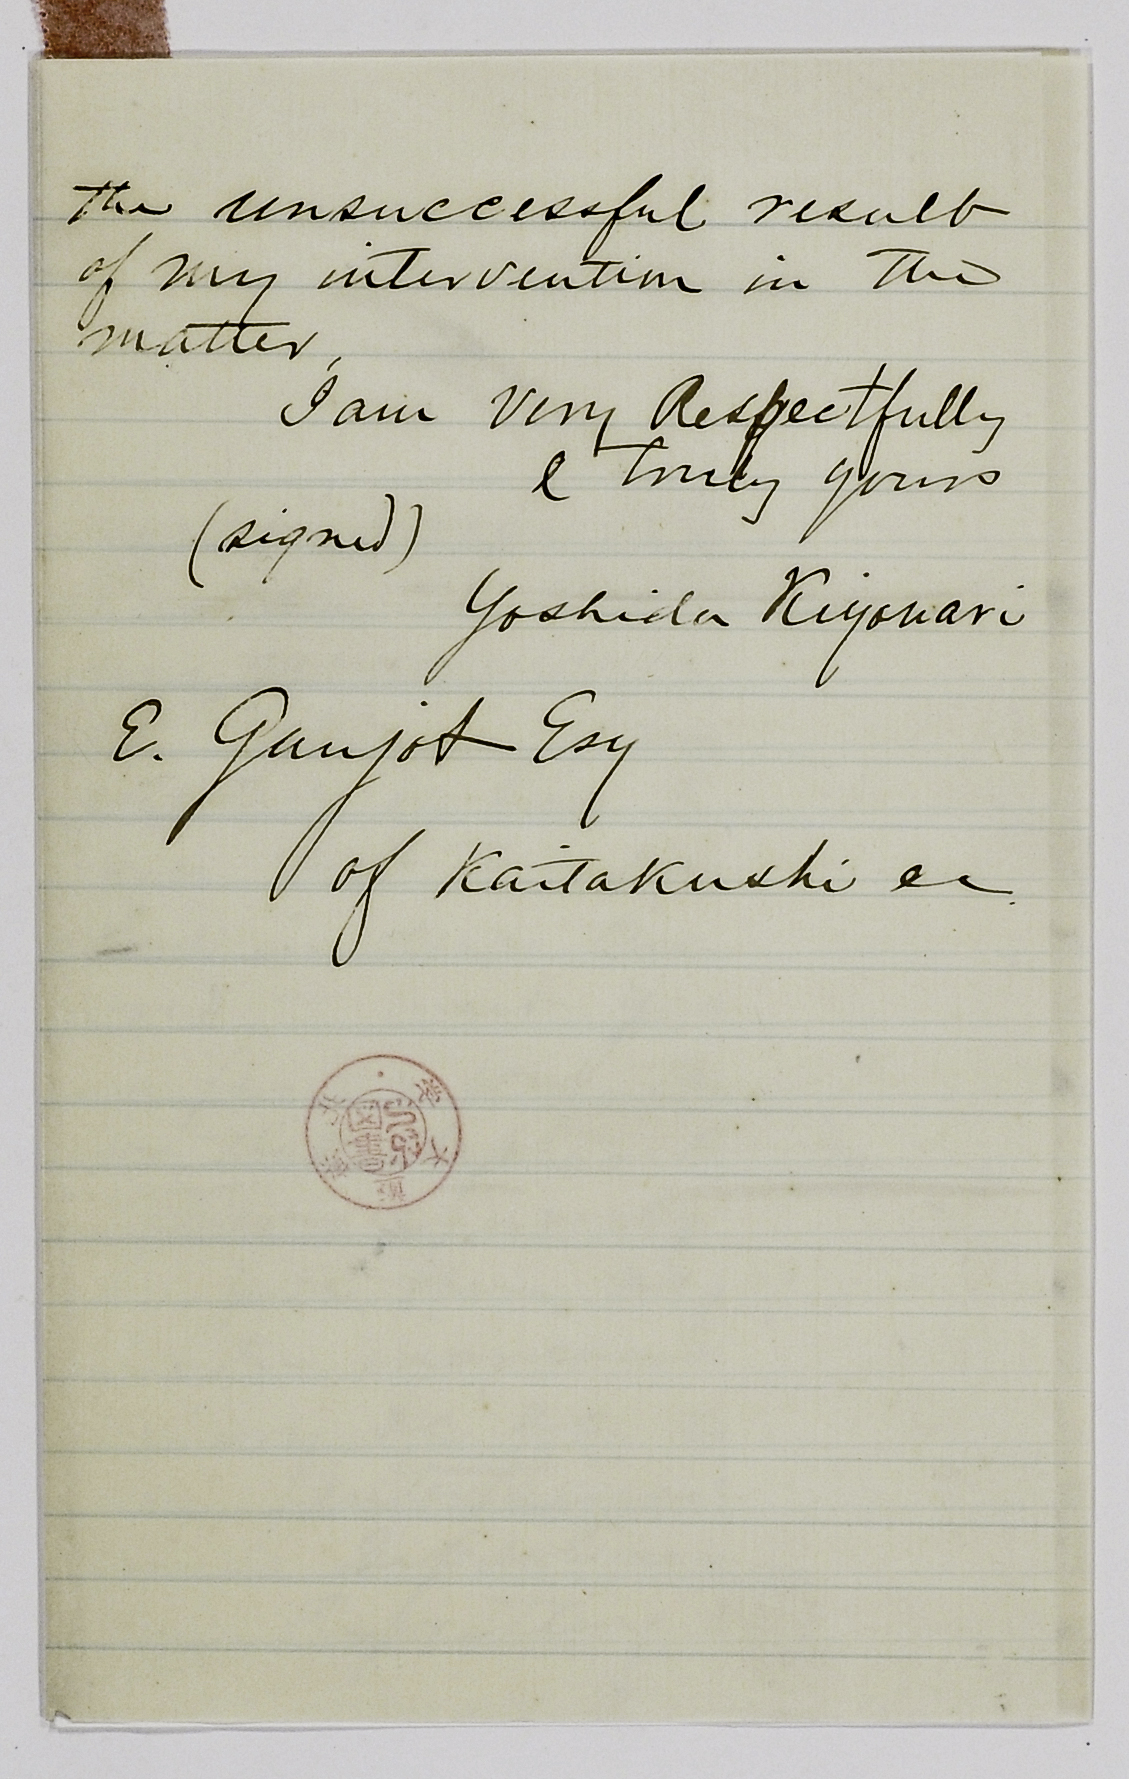 the unsuccessful result
of my intervention in the
matter,
I am Very Respectfully
& truly yours
(signed)
Yoshida Kiyonari
E. Gunjot Esq
of Kaitakushi
北海道大學
図書